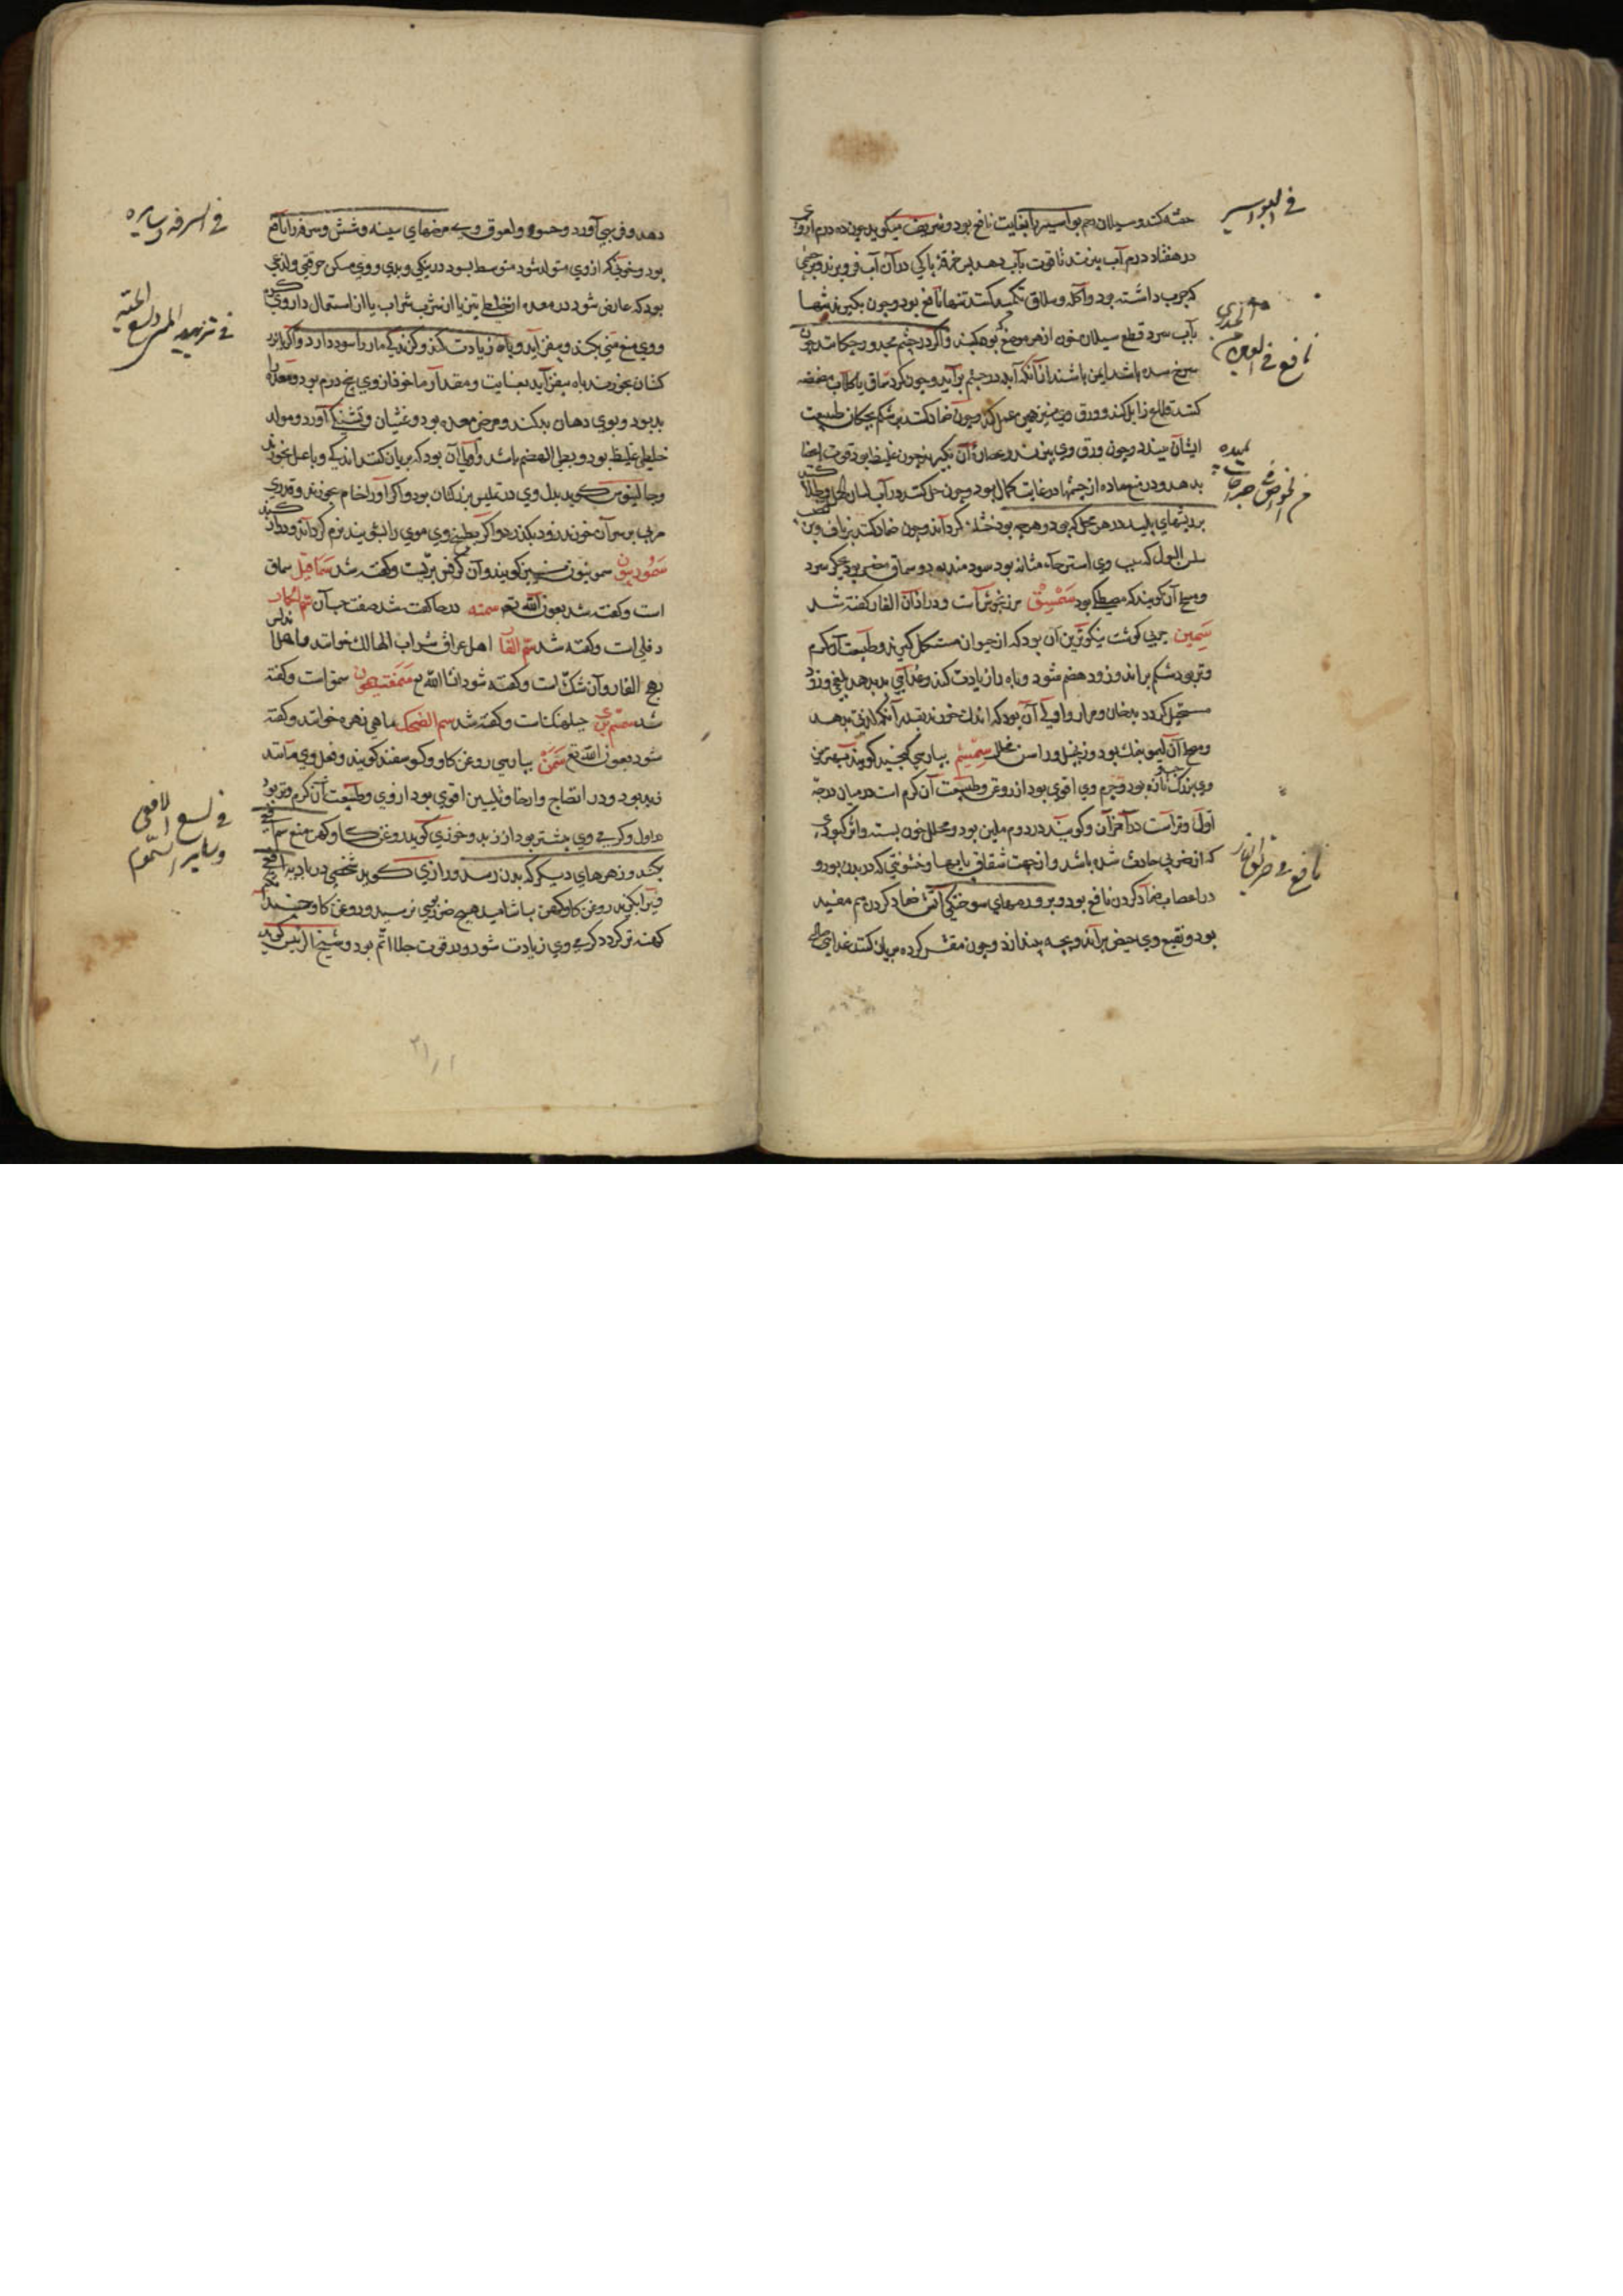 فی البواسیر
حقنه کنند و سیلان رحم بواسیر را بغایت نافع بود و شریف میکوید چون ده درم از وی
در هفتاد درم آب بپزند تا قوت بآب دهد پس خرقهٔ پاکی در آن آب فرو برند و بر چشمی
که جرب داشته بود و آکله و سلاق تکمید کنند تنها نافع بود و چون بکیرند تنها
بآب سرد قطع سیلان خون از هر موضع که بود بکند و اکر در چشم مجدور چکانند چون
سرخ شده باشد ایمن باشند از آنکه آبله در چشم برآید و چون کرد سماق با کلاب مضمضه
کنند قلاع زایل کند و ورق وی نیز همین عمل کند و چون ضماد کنند بر شکم بچکان طبیعت
ایشان ببندد و چون ورق وی بپزند و عصارهٔ آن بکیرند چون غلیظ بود قوت
بدهد و در منع ماده از چشمها در غایت کمال بود و چون حل کنند در آب لسان الحمل و طلا کنند
بر ریشهای پلید در هر محل که بود و هرچه بود خشک کرداند و چون ضماد کنند بر ناف و بن
سلس البول که سبب وی استرخاء مثانه بود سودمند بود و سماق مضر بود بجکر سرد
و مصلح آن کویند که مصطکی بود سمسق مرزنجوش است و در آذان الفار کفته شد
سمین چربی کوشت نیکوترین آن بود که از حیوان مستکمل کیرند و طبیعت آن کرم
و تر بود شکم براند و زود هضم شود و باه را زیادت کند و غذایی بد بدهد بلغمی و زود
مستحیل کردد بدخان و مرار و اولی آن بود که اندک خورند بقدر آنکه لذتی بدهد
و مصلح آن لیمو بنمک بود و زنجبیل و راسن مخلل سمسم بپارسی کنجید کویند بهترین
وی بزرک تازه بود و جرم وی اقوی بود از روغن و طبیعت آن کرم است در میان درجهٔ
اول و تر است در آخر آن و کویند در دوم ملین بود و محلل خون بسته و اثر کبودی
که از ضربی حادث شده باشد و از جهت شقاق پایها و خشونتی که در بدن بود و
در اعصاب ضماد کردن نافع بود و بر ورمهای سوختکی آتش ضماد کردن هم مفید
بود و نقیع وی حیض براند و بچه بیندازد و چون مقشر کرده بریان کنند غذایی
فی السرفه و سایره
دهد و فربهی آورد و حسو و لعوق وی مرضهای سینه و شش و سرفه را نافع
بود و خونی که از وی متولد شود متوسط بود در نیکی و بدی و وی مسکن حرقتی و لذعی
بود که عارض شود در معده از خلطی تیز یا از شرب شراب یا از استعمال داروی کرم
و وی منع منی بکند و بیفزاید و باه زیادت کند و کزندکی مار را سود دارد و اکر با بزر
کتان بخورند باه بیفزاید بغایت و مقدار ماخوذ از وی پنج درم بود و معده را
بد بود و بوی دهان بد کند و مرض معده بود و غثیان و تشنکی آورد و مولد
خلطی غلیظ بود و بطی الهضم باشد و اولی آن بود که بریان کنند اندکی و با عسل بخورند
و جالینوس کوید بدل وی در تلیین بزر کتان بود و اکر او را خام بخورند و قدری
مربی بر سر آن خورند زود بکذرد و اکر بطبیخ وی موی را بشویند نرم کرداند و دراز کند
سمورنیون سمونیون نیز کویند و آن کرفس بریست و کفته شد سماقیل سماق
است و کفته شد بعون الله تع سمنه در حا کفت شد صفت حب آن سم الحمار
دفلی است و کفته شد سم الفار اهل عراق تراب الهالک خوانند و اهل اندلس
رهج الفار و آن شک است و کفته شود انشا الله تع سمفیتیون سمفوات و کفته
شد سمسم بری جلبهنک است و کفته شد سم السمک ماهی زهره خوانند و کفته
شود بعون الله تع سمن بپارسی روغن کاو و کوسفند کویند و فعل وی مانند
زبد بود و در انضاج و ارخا و تلیین اقوی بود از وی و طبیعت آن کرم و تر بود
در اول و کرمی وی بیشتر بود از زبد و خوزی کوید روغن کاو کهن منع سم افعی
بکند و زهرهای دیکر که ببدن رسد و رازی کوید شخصی در بادیه افعی
ویرا بکزید روغن کاو کهن بیاشامید هیچ ضرری بوی نرسید و روغن کاو چندانکه
کهنه تر کردد کرمی وی زیادت شود و در قوت جلا اتم بود و شیخ الرئیس کوید
فی لسع الافعی
و سایر السموم